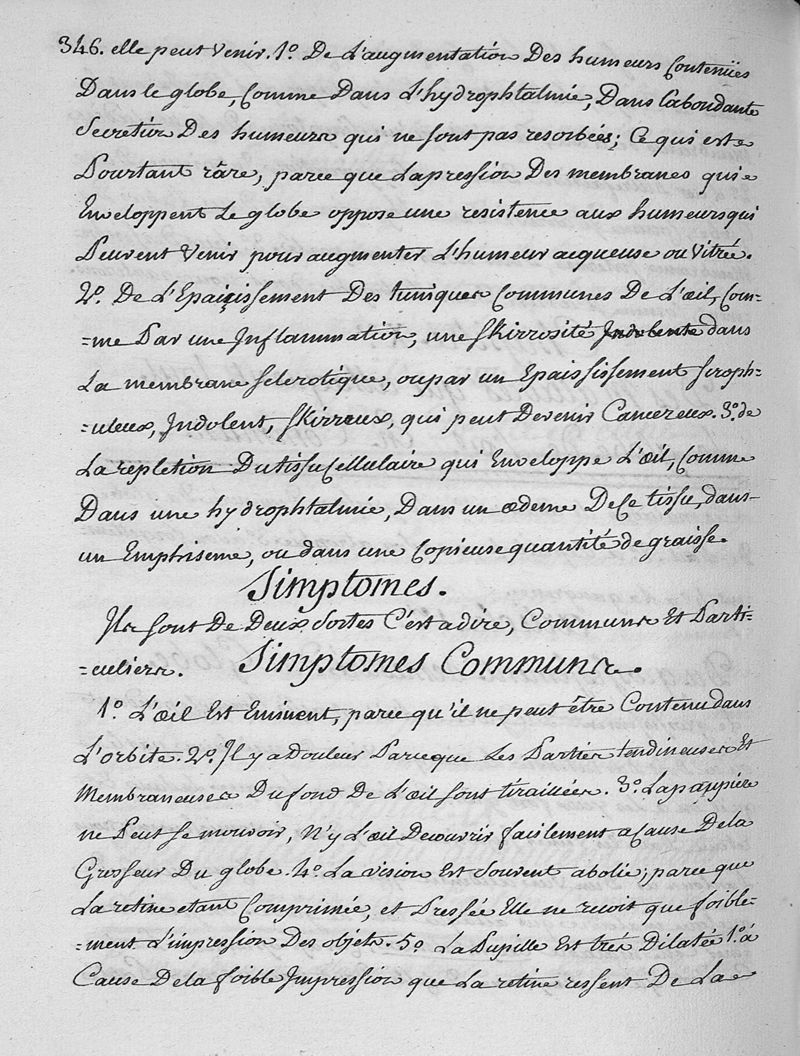 346. elle peut venir. 1º. De L'augmentation Des humeurs Contenües
Dans le globe, Comme Dans L'hydrophtalmie, Dans L'abondante
Secretion Des humeurs qui ne sont pas resorbées; Ce qui est
Pourtant râre, parce que La pression Des membranes qui
Enveloppent Le globe oppose une resistence aux humeurs qui
Peuvent Venir pour augmenter L'humeur acqueuse ou Vitrée.
2º. De L'Epaicissement Des tuniques Communes De L'œil, Com-
=me Par une Inflammation, une Skirrosité Indolente dans
La membrane Sclerotique, ou par un Epaississement scroph-
=uleux, Indolent, Skirreux, qui peut Devenir Cancereux. 3º. de
La repletion Du tissu Cellulaire qui Enveloppe L'œil, Comme
Dans une hydrophtalmie, Dans un œdeme De Ce tissu, dans
un Emphiseme, ou dans une Copieuse quantité de graisse.
Simptomes.
Ils sont De Deux Sortes C'est a dire, Communs Et Parti-
=culiers. Simptomes Communs.
1º. L'œil Est Eminent, parce qu'il ne peut être Contenu dans
L'orbite. 2º. Il y a Douleur Parce que Les Parties tendineuses Et
Membraneuses Du fond De L'œil sont tiraillées. 3º. La pappiere
ne Peut se mouvoir, N'y L'œil Decouvrir facilement a Cause De la
Grosseur Du globe. 4º. La vision Est Souvent abolie; parce que
La retine etant Comprimée, et Pressée Elle ne recoit que foible-
=ment L'impression Des objets. 5º La Pupille Est très Dilatée 1º. à
Cause De la foible Impression que La retine ressent De La